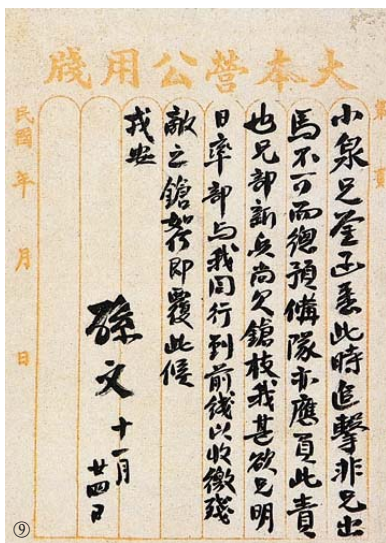 大本營公用牋
小泉兄鑒函悉此時追擊非兄出
馬不可而總預備隊亦應負此責
也兄部新兵尚欠鎗枝我甚欲兄明
日率部与我同行到前綫以收繳殘
敵之鎗如何即覆此候
戎安
孫文 十一月
廿四日
民國 年 月 日
⑨